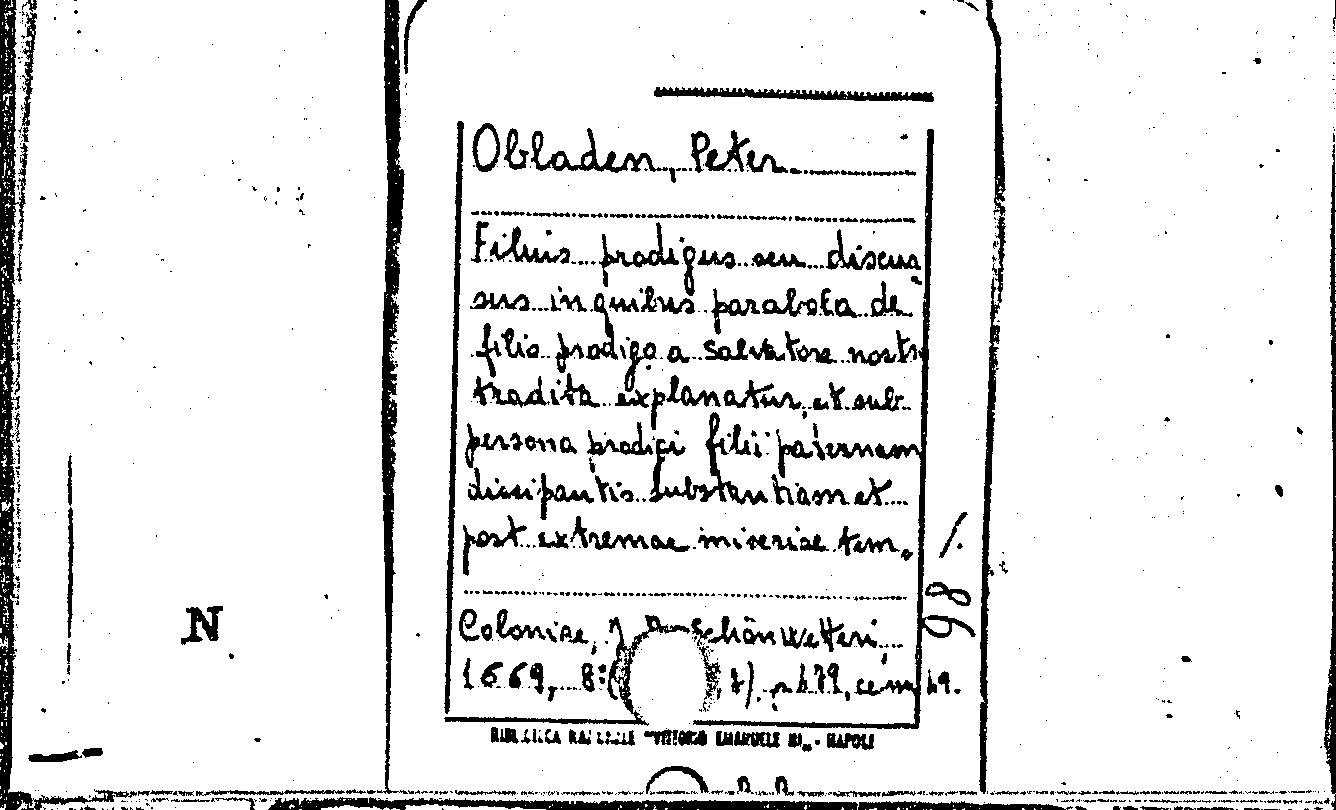 Obladen, Peter.
Filius prodigus seu discur
sus in quibus parabola de
filio prodigo a Salvatore nostro
tradita explanatur, et sub
persona prodigi filii paternam
dissipantis substantiam et
post extremae miseriae tem.
98 /.
N
Coloniae, J. Schönwetteri,
1669, 8:( ), p. 479, cm 19.
BIBLIOTECA NAZIONALE "VITTORIO EMANUELE III„ - NAPOLI